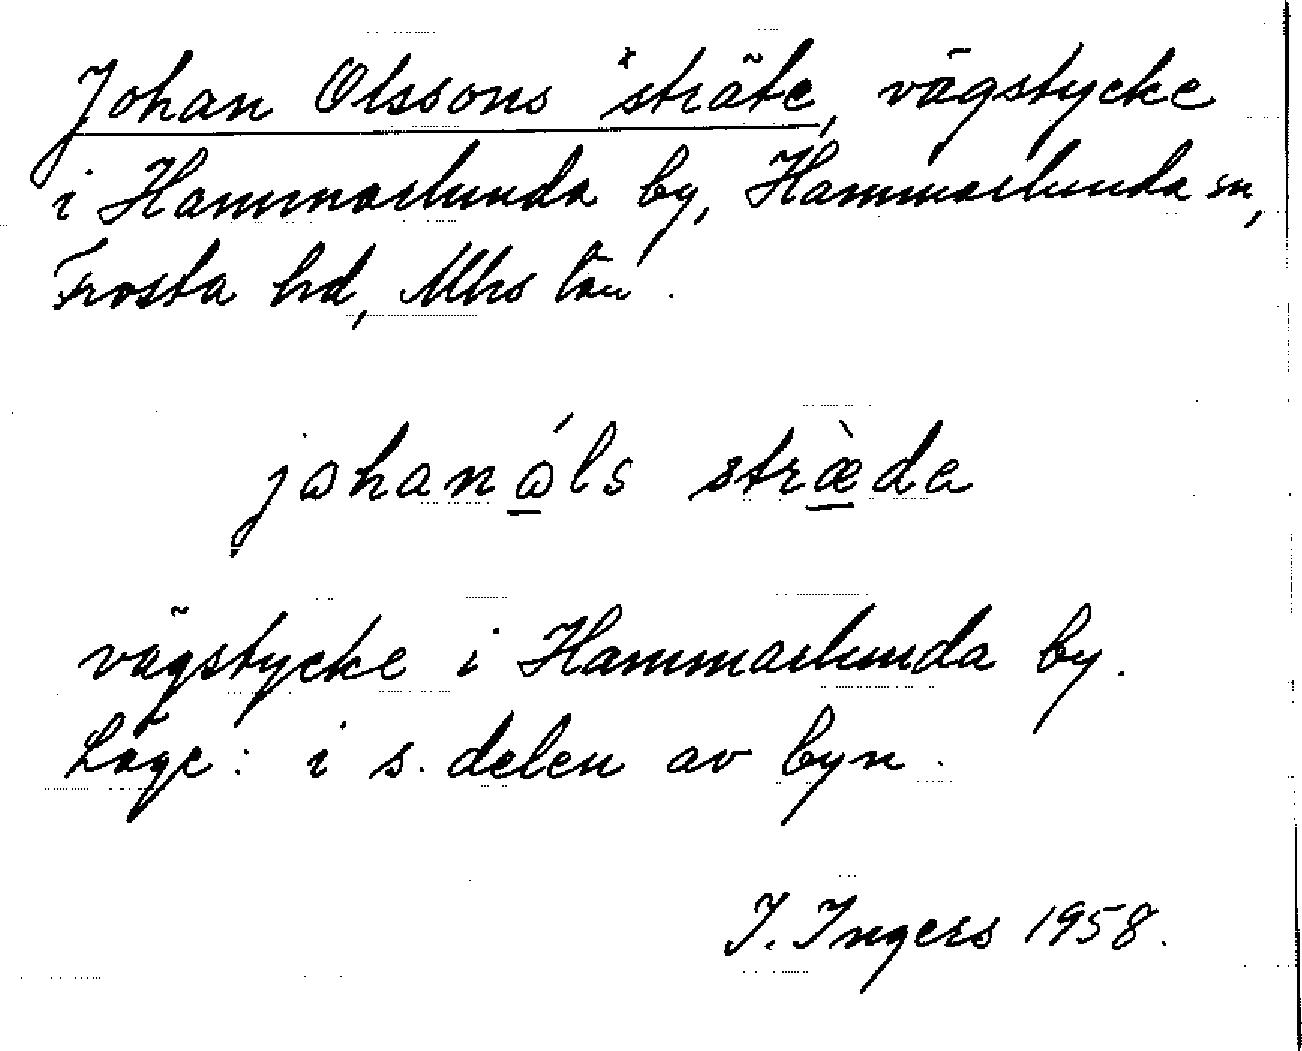 Johan Olssons *sträte, vägstycke
i Hammarlunda by, Hammarlunda sn,
Frosta hd, Mhs län.
johanώls stræ̀da
vägstycke i Hammarlunda by.
Läge: i s. delen av byn.
I. Ingers 1958.